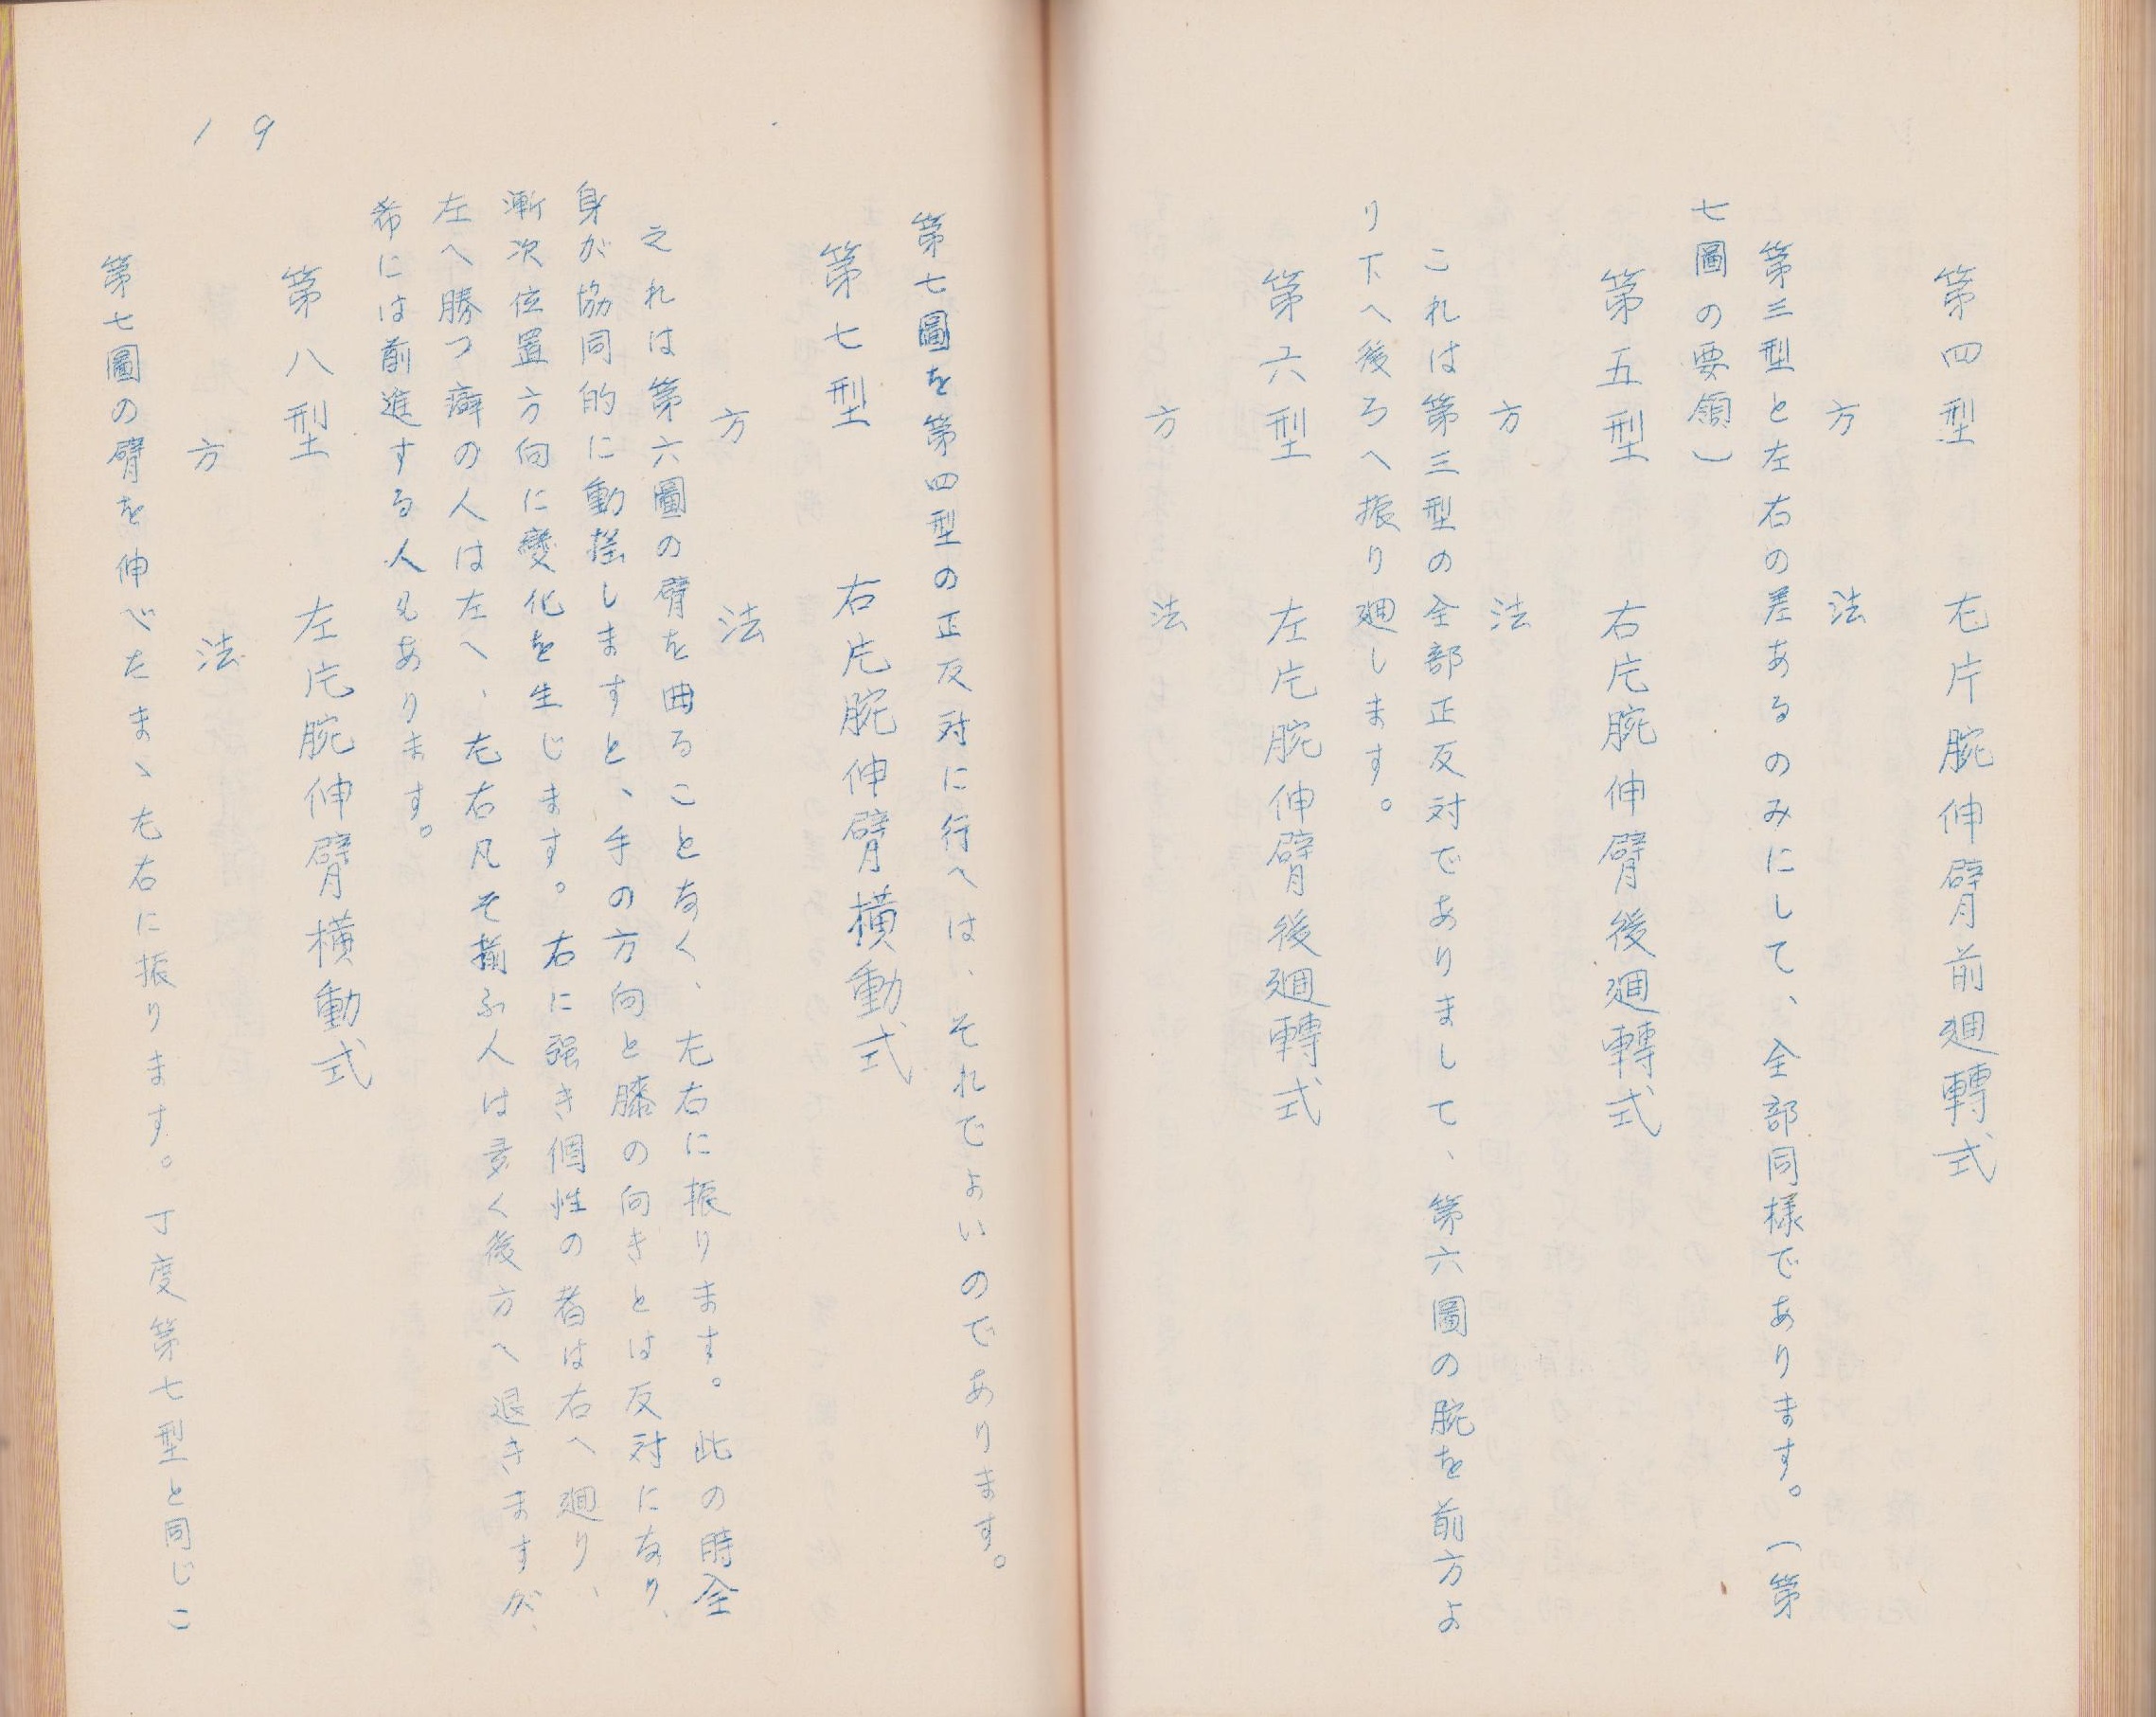 第四型　左片腕伸臂前廻轉式
方　法
第三型と左右の差あるのみにして、全部同様であります。（第
七圖の要領）
第五型　右片腕伸臂後廻轉式
方　法
これは第三型の全部正反対でありまして、第六圖の腕を前方よ
り下へ後ろへ振り廻します。
第六型　左片腕伸臂後廻轉式
方　法
第七圖を第四型の正反対に行へは、それでよいのであります。
第七型　右片腕伸臂横動式
方　法
之れは第六圖の臂を曲ることなく、左右に振ります。此の時全
身が協同的に動揺しますと、手の方向と膝の向きとは反対になり、
漸次位置方向に變化を生じます。右に强き個性の者は右へ廻り、
左へ勝つ癖の人は左へ、左右凡そ揃ふ人は多く後方へ退きますが、
希には前進する人もあります。
第八型　左片腕伸臂横動式
方　法
第七圖の臂を伸べたまゝ左右に振ります。丁度第七型と同じこ
19